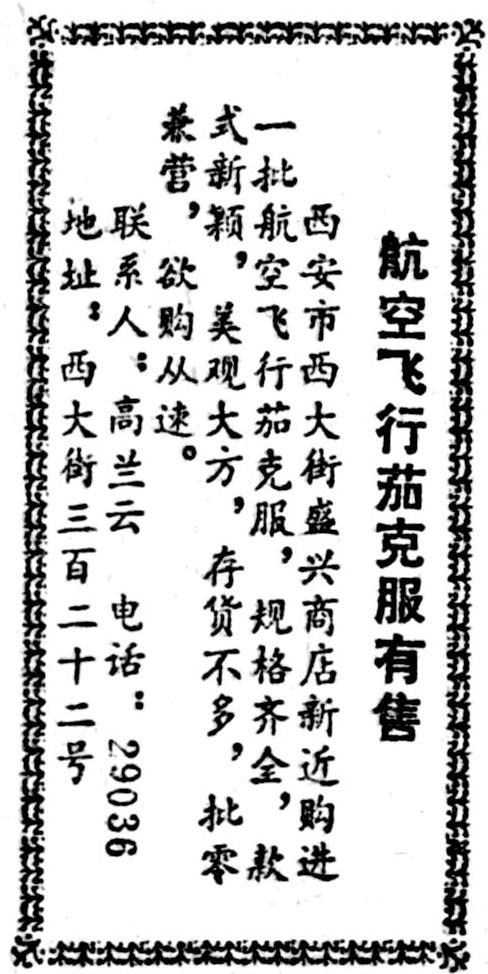 航空飞行茄克服有售
西安市西大街盛兴商店新近购进
一批航空飞行茄克服，规格齐全，款
式新颖，美观大方，存货不多，批零
兼营，欲购从速。
联系人：高兰云 电话：29036
地址：西大街三百二十二号